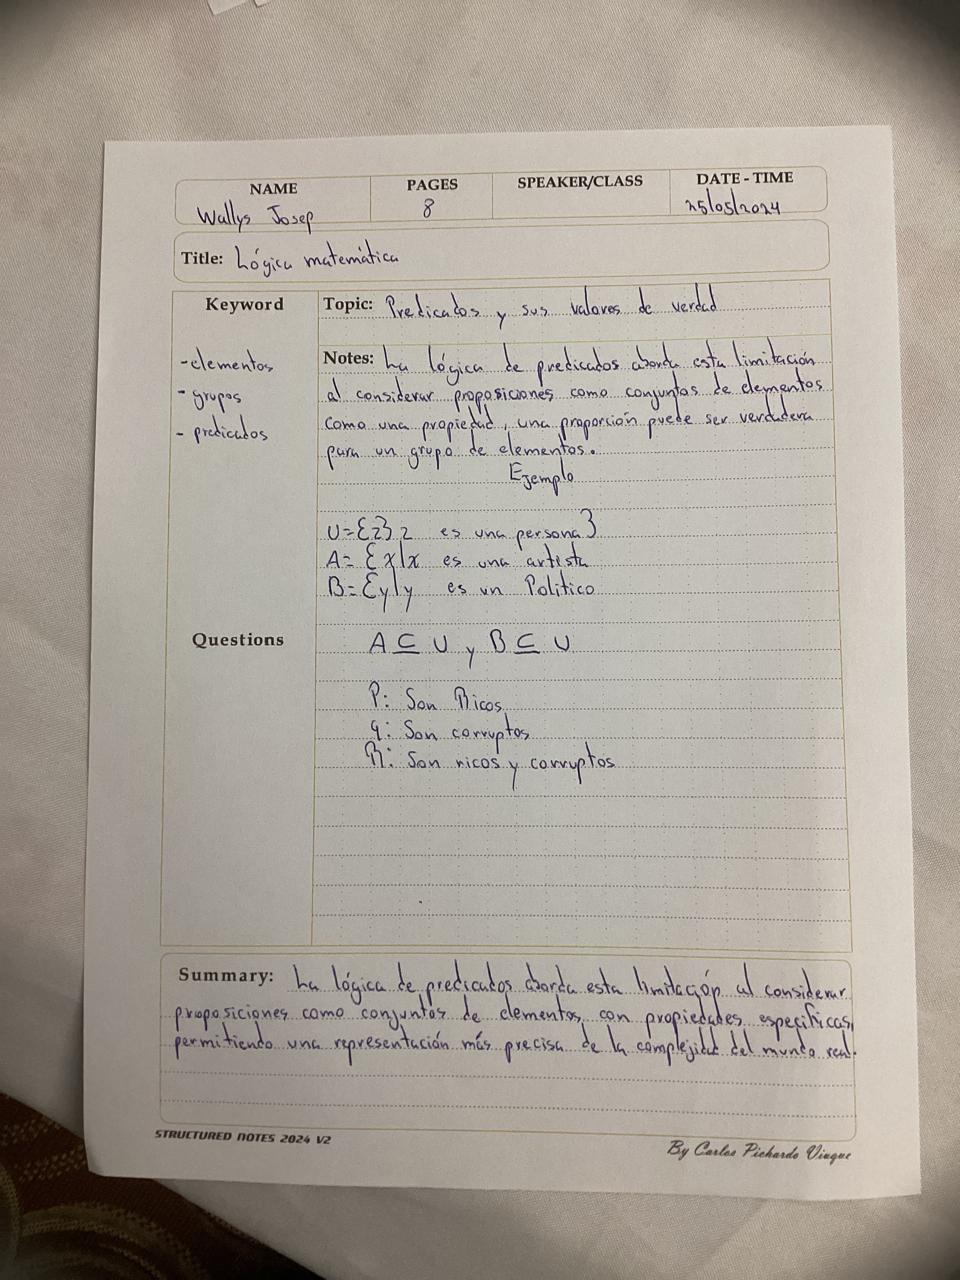 NAME PAGES SPEAKER/CLASS DATE - TIME
Wallys Josep 8 25/05/2024
Title: Lógica matemática
Keyword
-elementos
- grupos
- predicados
Topic: Predicados y sus valores de verdad
Notes: La lógica de predicados aborda esta limitación
al considerar proposiciones como conjuntos de elementos
como una propiedad, una proporción puede ser verdadera
para un grupo de elementos.
Ejemplo
U={z} z es una persona}
A= {x|x es una artista
B={y|y es un Político
Questions
A ⊆ U y B ⊆ U
P: Son Ricos
q: Son corruptos
R: Son ricos y corruptos
Summary: La lógica de predicados aborda esta limitación al considerar
proposiciones como conjuntos de elementos con propiedades específicas,
permitiendo una representación más precisa de la complejidad del mundo real.
STRUCTURED NOTES 2024 V2
By Carlos Pichardo Viuque